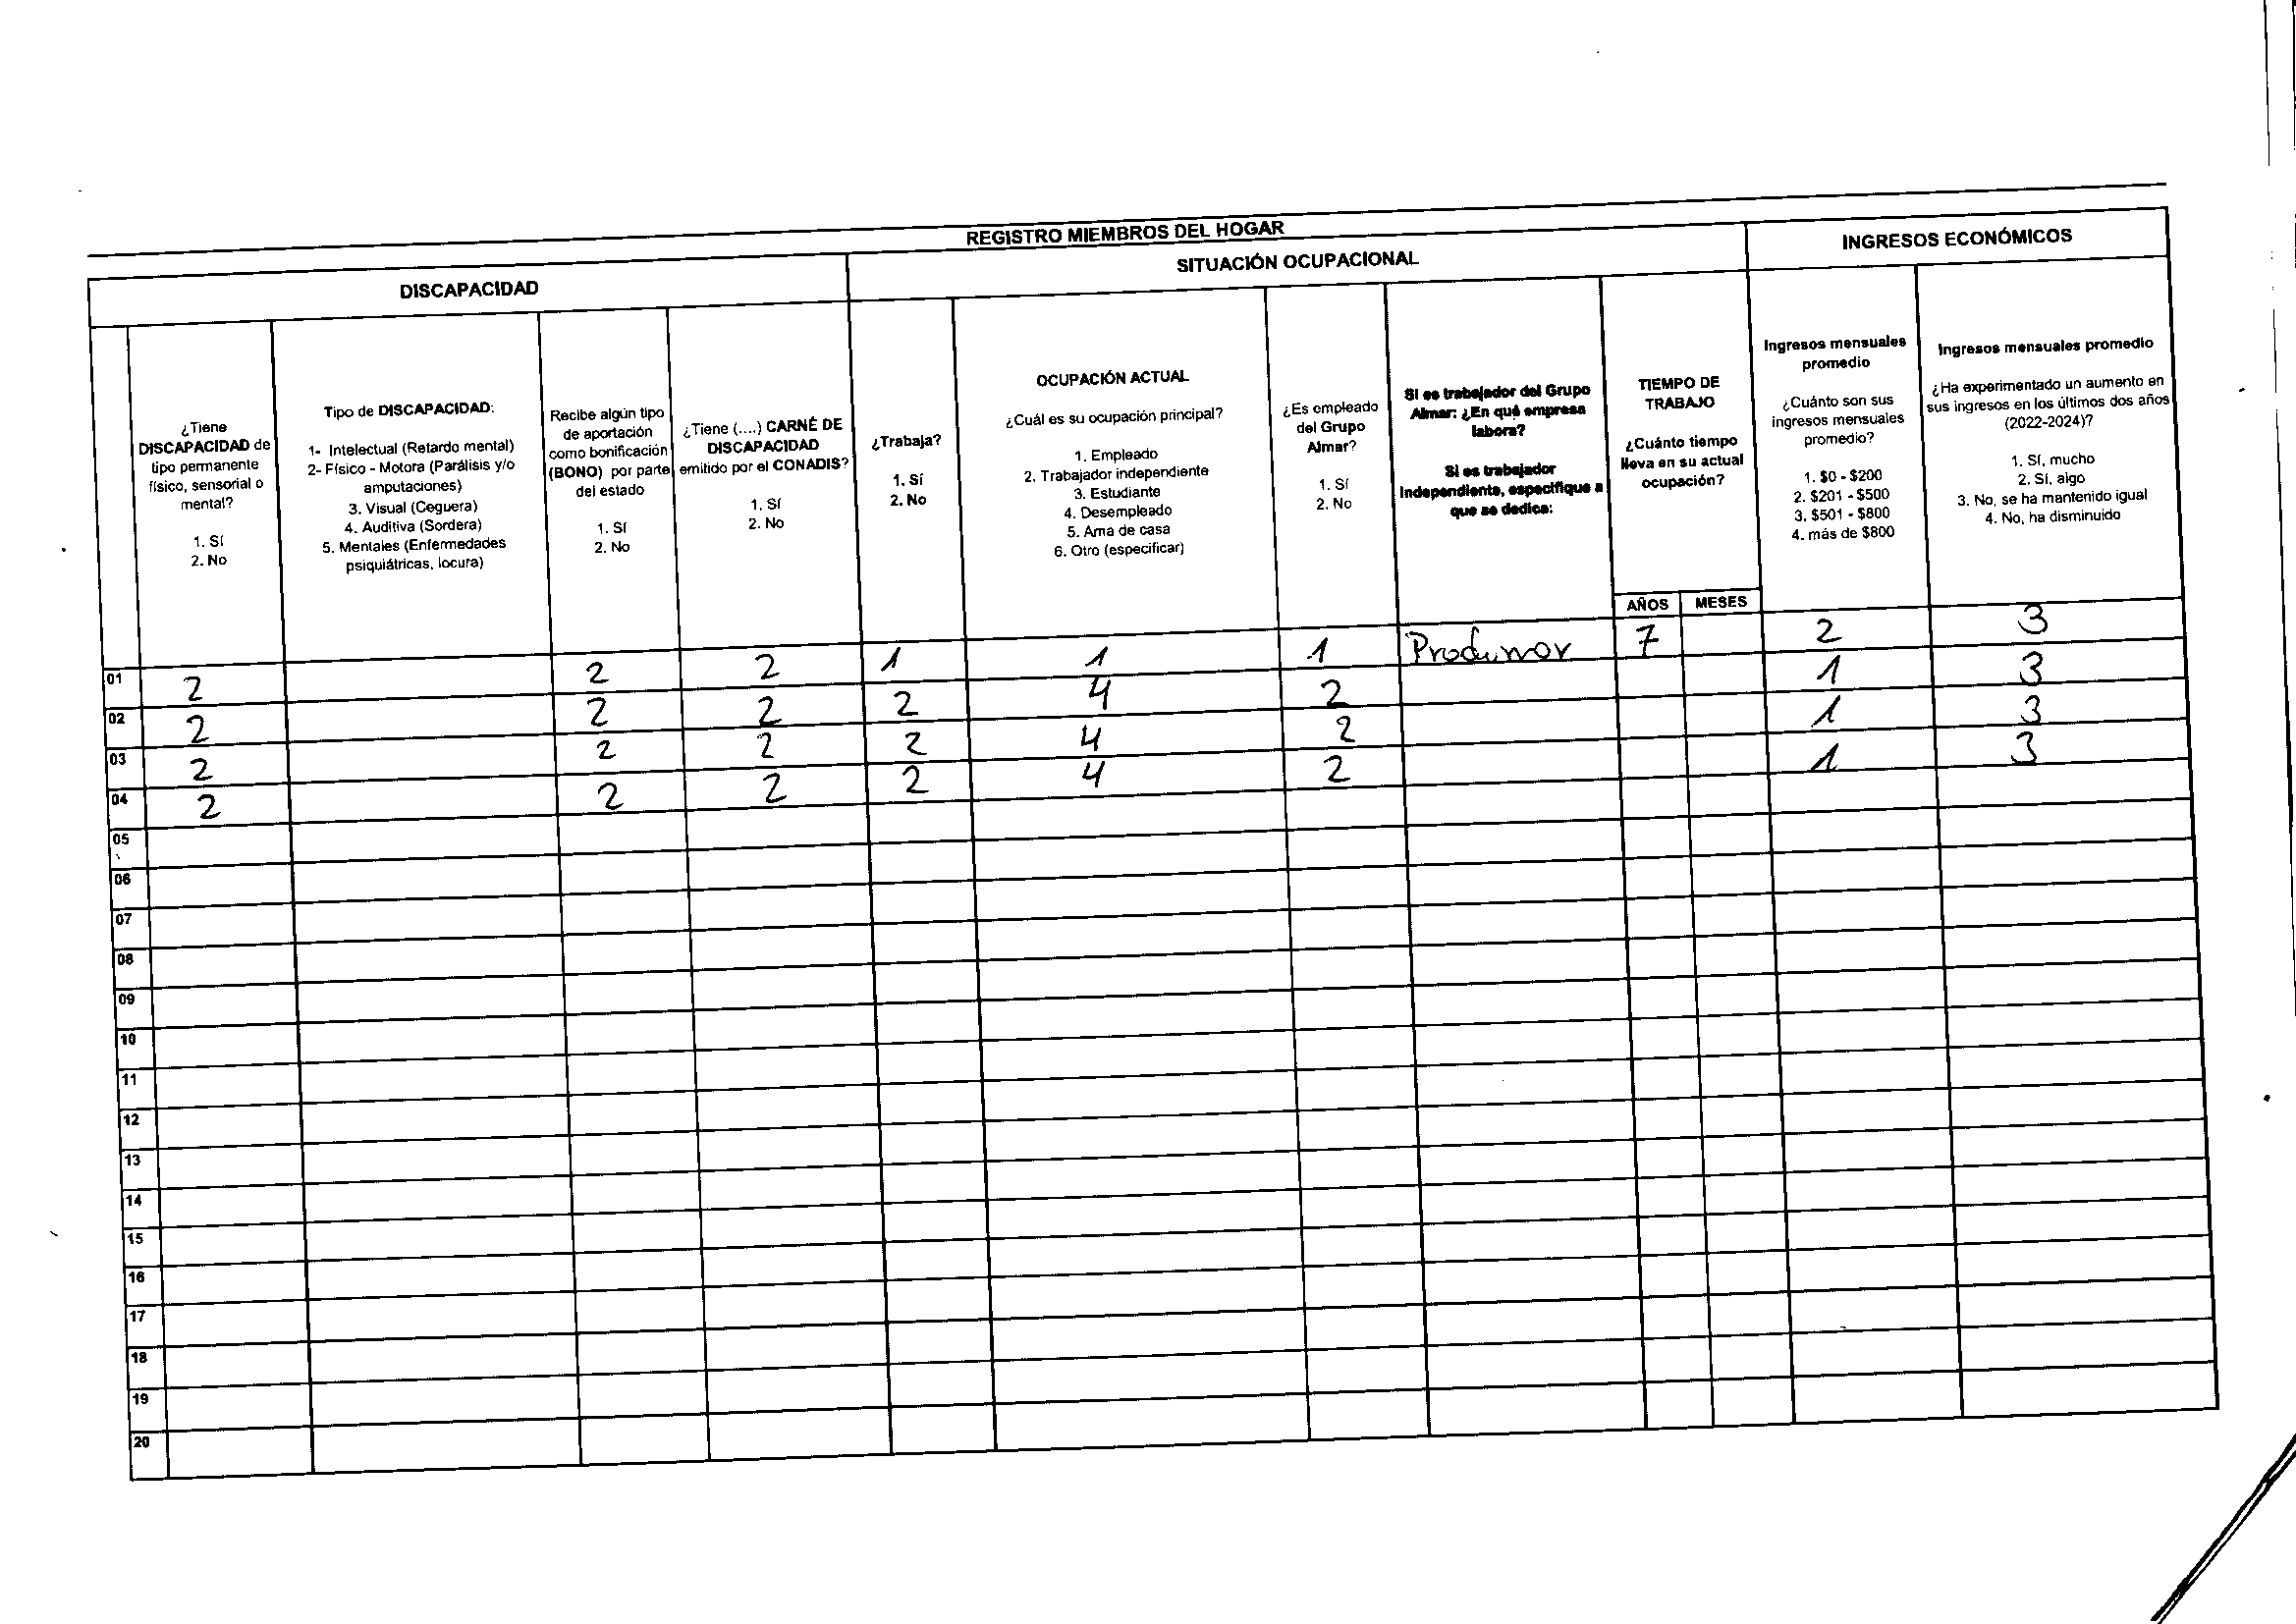 REGISTRO MIEMBROS DEL HOGAR
DISCAPACIDAD
SITUACIÓN OCUPACIONAL
INGRESOS ECONÓMICOS
¿Tiene
DISCAPACIDAD de
tipo permanente
físico, sensorial o
mental?
1. Sí
2. No
Tipo de DISCAPACIDAD:
1- Intelectual (Retardo mental)
2- Físico - Motora (Parálisis y/o
amputaciones)
3. Visual (Ceguera)
4. Auditiva (Sordera)
5. Mentales (Enfermedades
psiquiátricas, locura)
Recibe algún tipo
de aportación
como bonificación
(BONO) por parte
del estado
1. Sí
2. No
¿Tiene (....) CARNÉ DE
DISCAPACIDAD
emitido por el CONADIS?
1. Sí
2. No
¿Trabaja?
1. Sí
2. No
OCUPACIÓN ACTUAL
¿Cuál es su ocupación principal?
1. Empleado
2. Trabajador independiente
3. Estudiante
4. Desempleado
5. Ama de casa
6. Otro (especificar)
¿Es empleado
del Grupo
Almar?
1. Sí
2. No
Si es trabajador del Grupo
Almar: ¿En qué empresa
labora?
Si es trabajador
independiente, especifique a
que se dedica:
TIEMPO DE
TRABAJO
¿Cuánto tiempo
lleva en su actual
ocupación?
AÑOS MESES
Ingresos mensuales
promedio
¿Cuánto son sus
ingresos mensuales
promedio?
1. $0 - $200
2. $201 - $500
3. $501 - $800
4. más de $800
Ingresos mensuales promedio
¿Ha experimentado un aumento en
sus ingresos en los últimos dos años
(2022-2024)?
1. Sí, mucho
2. Sí, algo
3. No, se ha mantenido igual
4. No, ha disminuido
01 2 2 2 1 1 1 Produmar 7 2 3
02 2 2 2 2 4 2 1 3
03 2 2 2 2 4 2 1 3
04 2 2 2 2 4 2 1 3
05
06
07
08
09
10
11
12
13
14
15
16
17
18
19
20